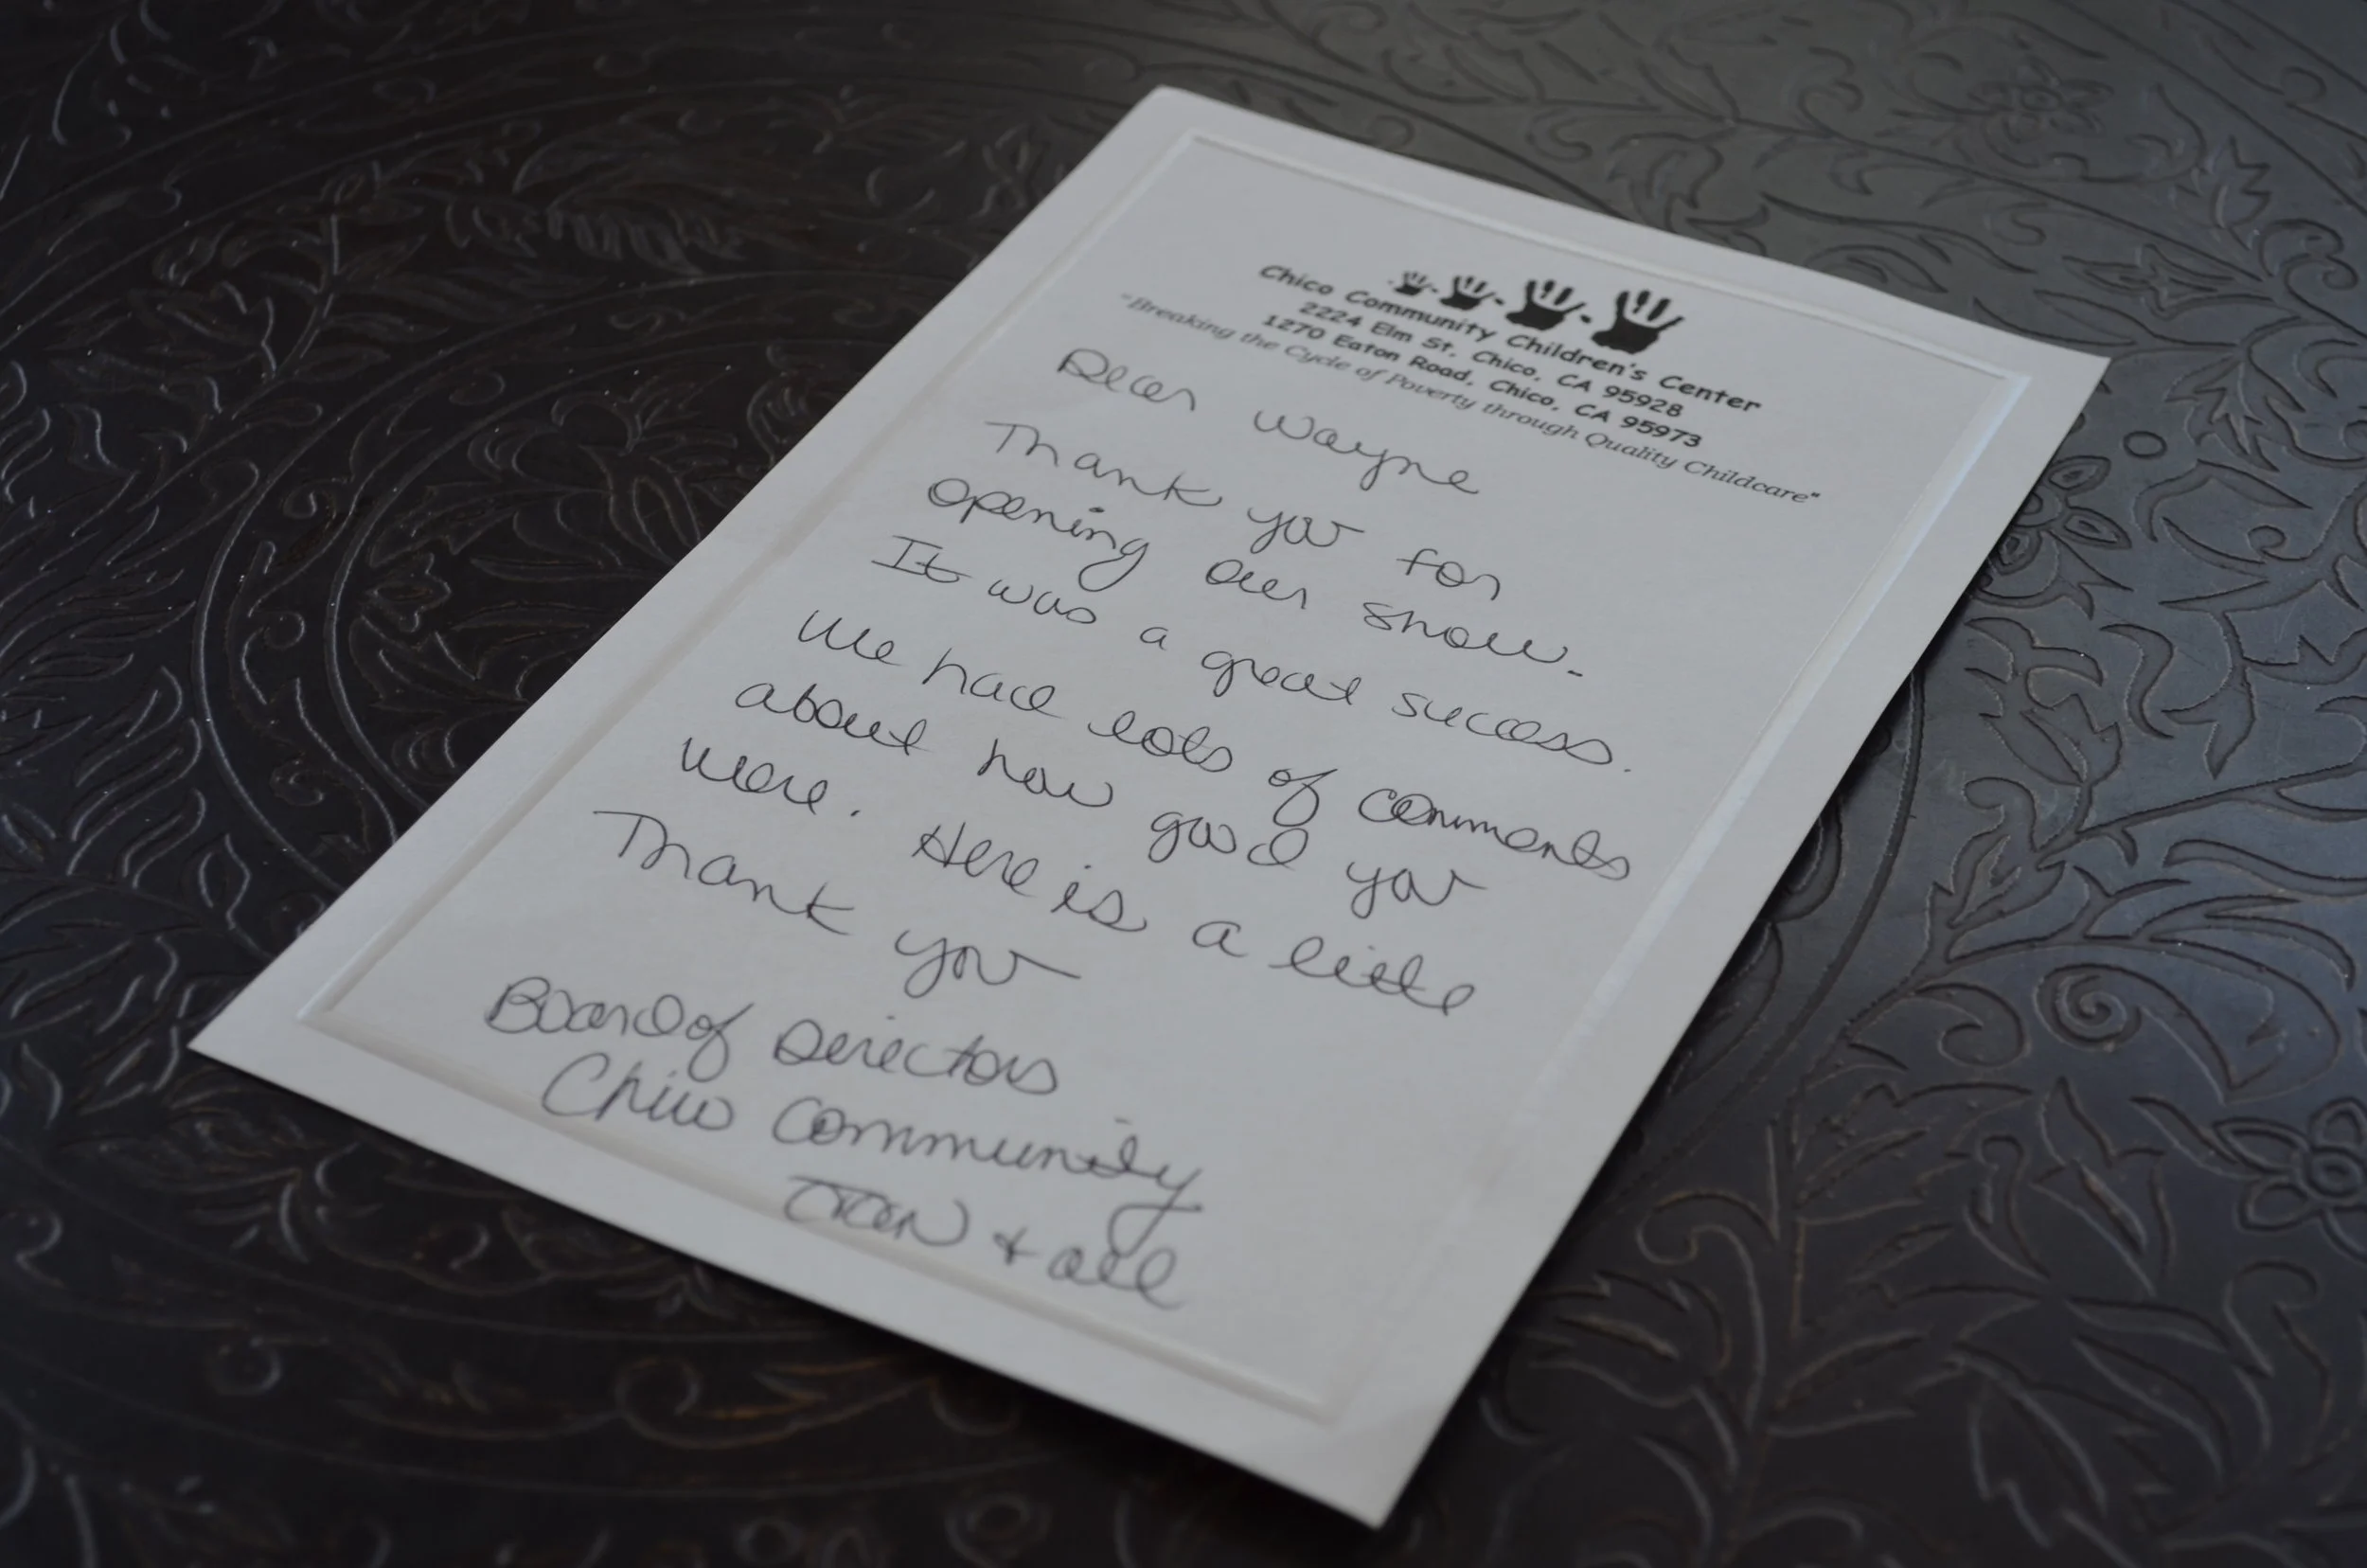 Chico Community Children's Center
2224 Elm St. Chico, CA 95928
1270 Eaton Road, Chico, CA 95973
"Breaking the Cycle of Poverty through Quality Childcare"
Dear Wayne
Thank you for
opening our show.
It was a great success.
We had lots of comments
about how good you
were. Here is a little
Thank you
Board of Directors
Chico Community
& all